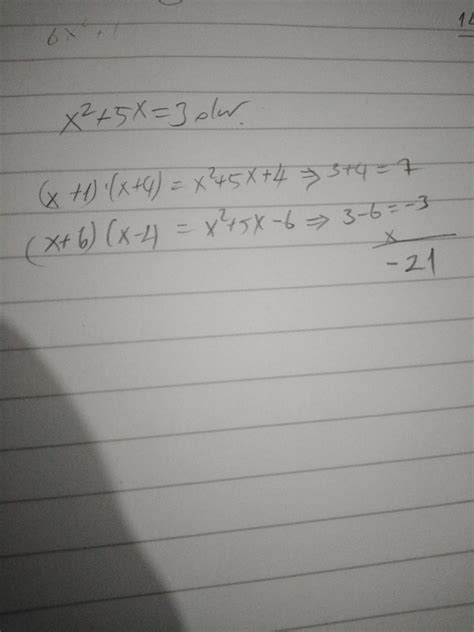 x²+5x=3 olur.
(x+1)·(x+4) = x²+5x+4 ⇒ 3+4=7
(x+6)(x-1) = x²+5x-6 ⇒ 3-6=-3
x
-21